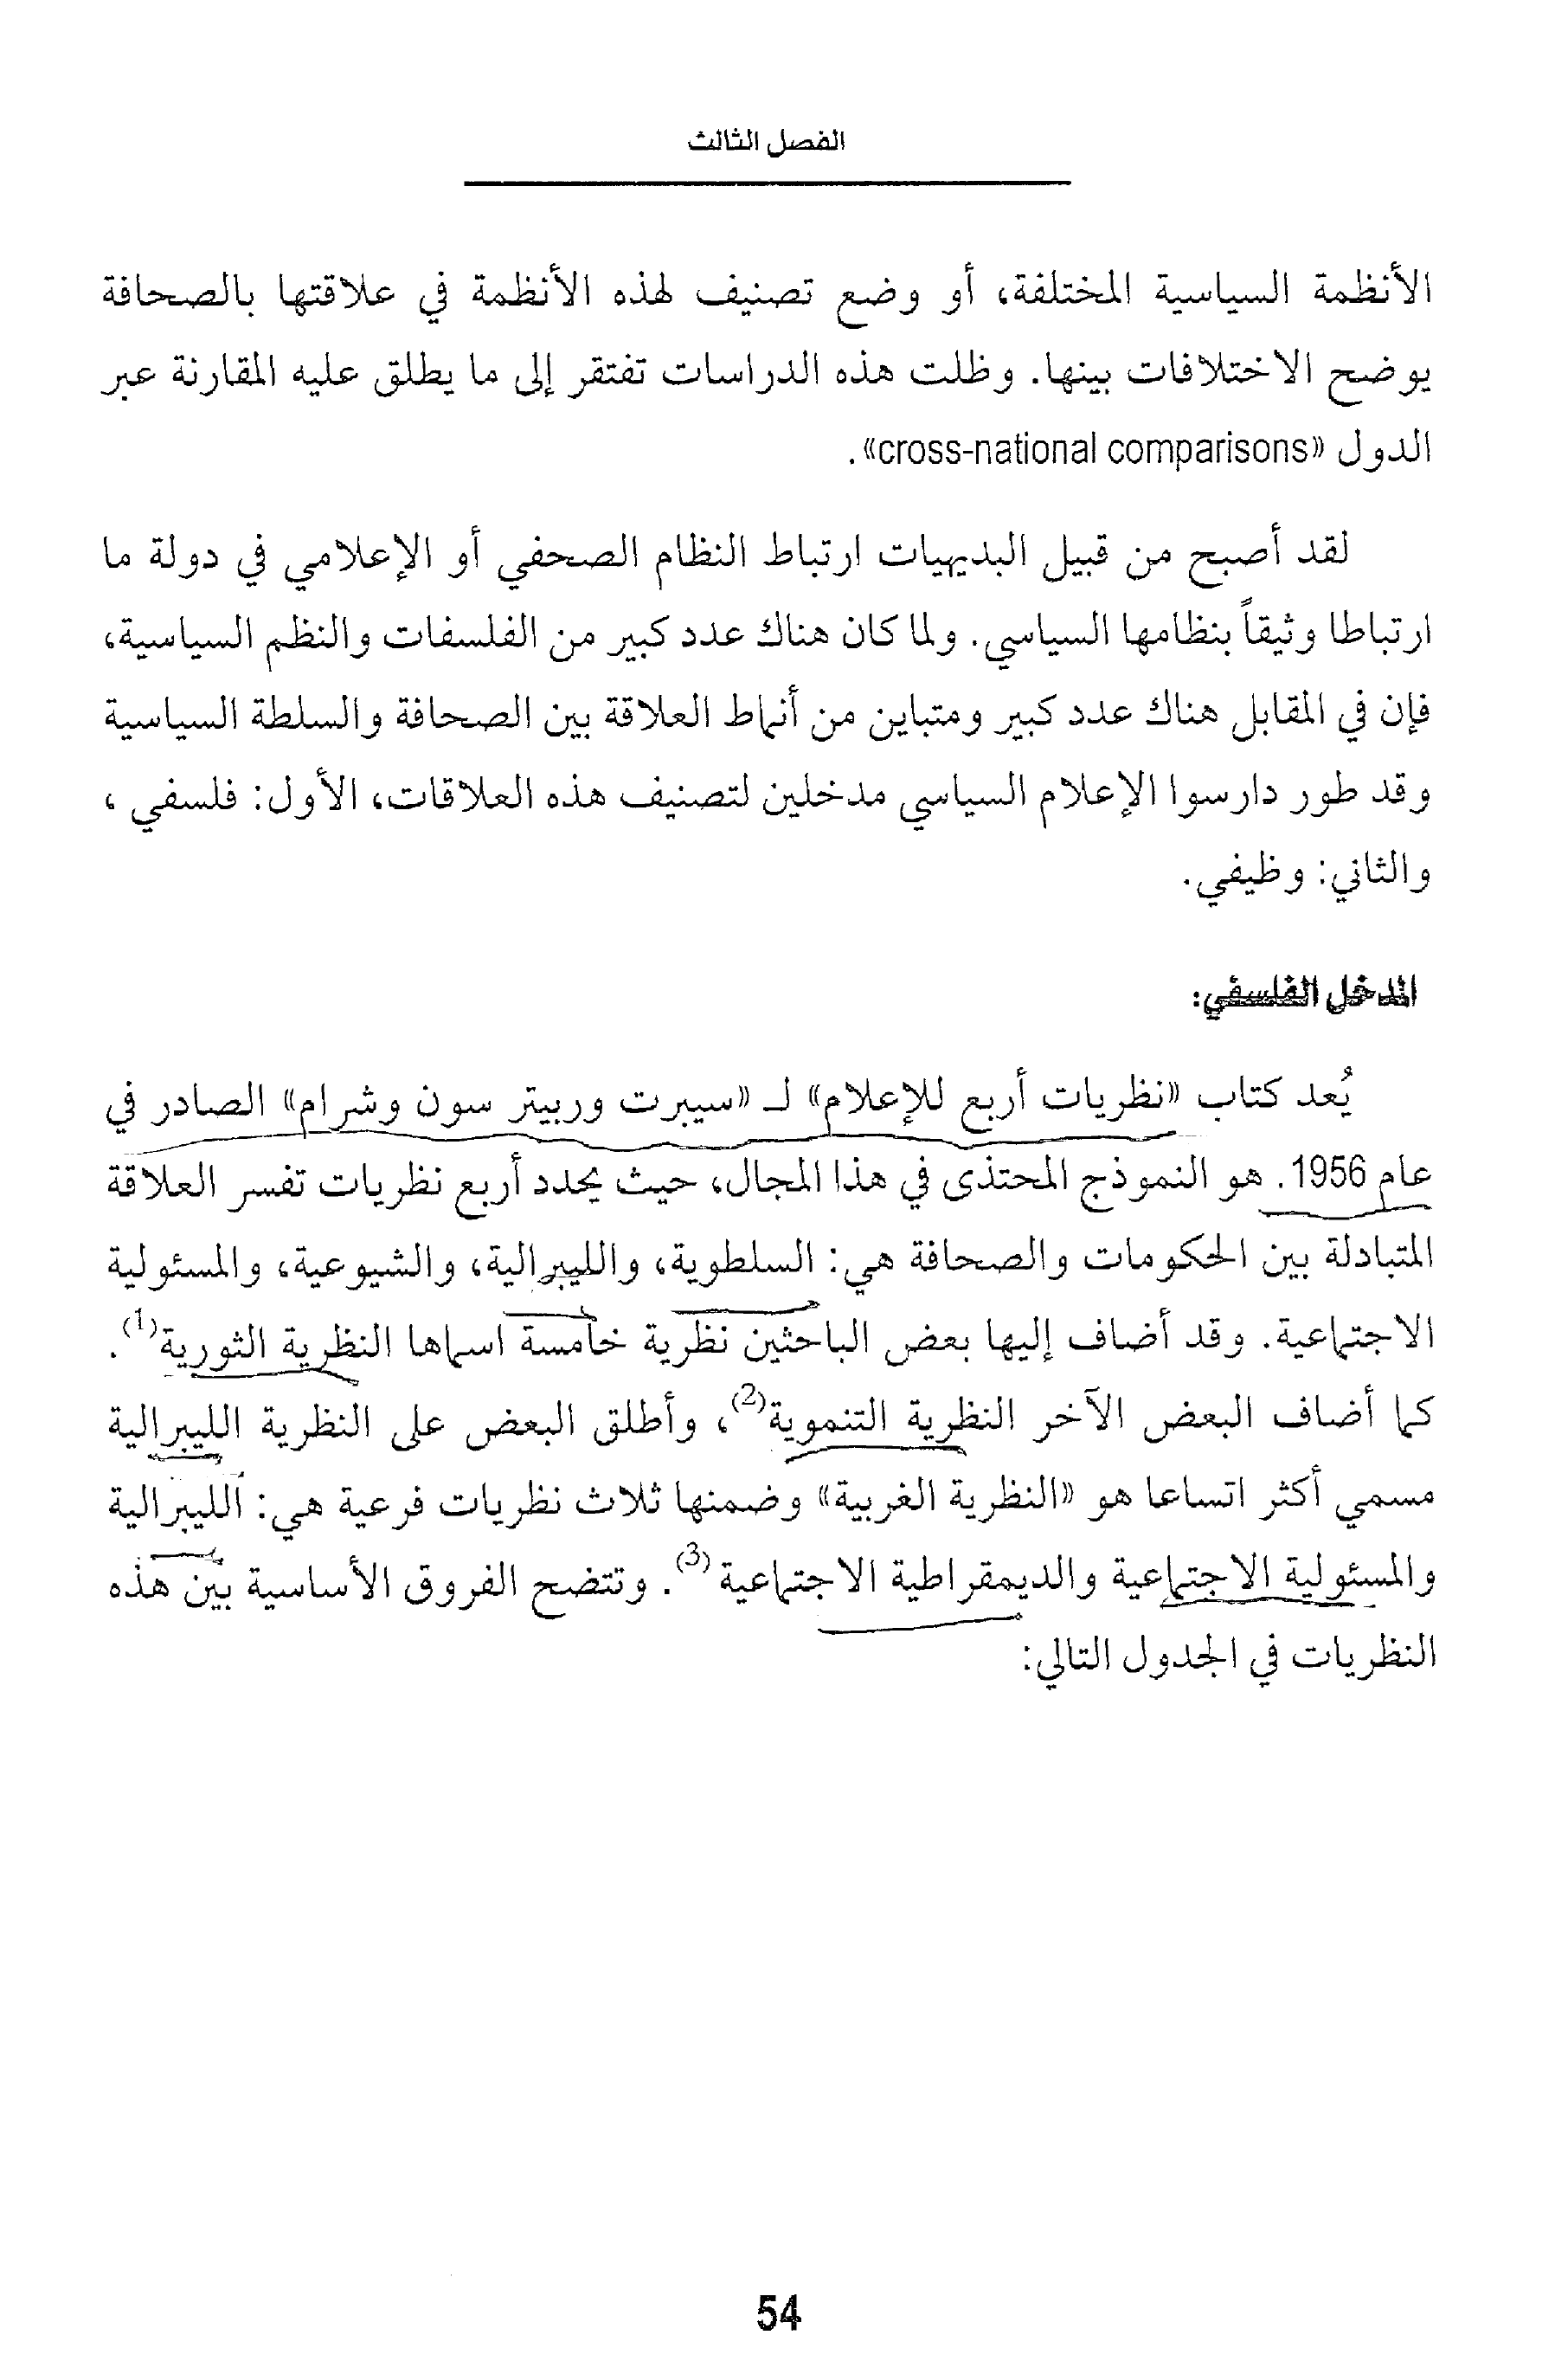 الفصل الثالث
الأنظمة السياسية المختلفة، أو وضع تصنيف لهذه الأنظمة في علاقتها بالصحافة
يوضح الاختلافات بينها. وظلت هذه الدراسات تفتقر إلى ما يطلق عليه المقارنة عبر
الدول «cross-national comparisons» .
لقد أصبح من قبيل البديهيات ارتباط النظام الصحفي أو الإعلامي في دولة ما
ارتباطا وثيقاً بنظامها السياسي. ولما كان هناك عدد كبير من الفلسفات والنظم السياسية،
فإن في المقابل هناك عدد كبير ومتباين من أنماط العلاقة بين الصحافة والسلطة السياسية
وقد طور دارسوا الإعلام السياسي مدخلين لتصنيف هذه العلاقات، الأول: فلسفي ،
والثاني: وظيفي.
المدخل الفلسفي:
يُعد كتاب «نظريات أربع للإعلام» لـ «سيبرت وربيتر سون وشرام» الصادر في
عام 1956. هو النموذج المحتذى في هذا المجال، حيث يحدد أربع نظريات تفسر العلاقة
المتبادلة بين الحكومات والصحافة هي: السلطوية، والليبرالية، والشيوعية، والمسئولية
الاجتماعية. وقد أضاف إليها بعض الباحثين نظرية خامسة اسماها النظرية الثورية(1).
كما أضاف البعض الآخر النظرية التنموية(2)، وأطلق البعض على النظرية الليبرالية
مسمي أكثر اتساعا هو «النظرية الغربية» وضمنها ثلاث نظريات فرعية هي: الليبرالية
والمسئولية الاجتماعية والديمقراطية الاجتماعية(3). وتتضح الفروق الأساسية بين هذه
النظريات في الجدول التالي:
54